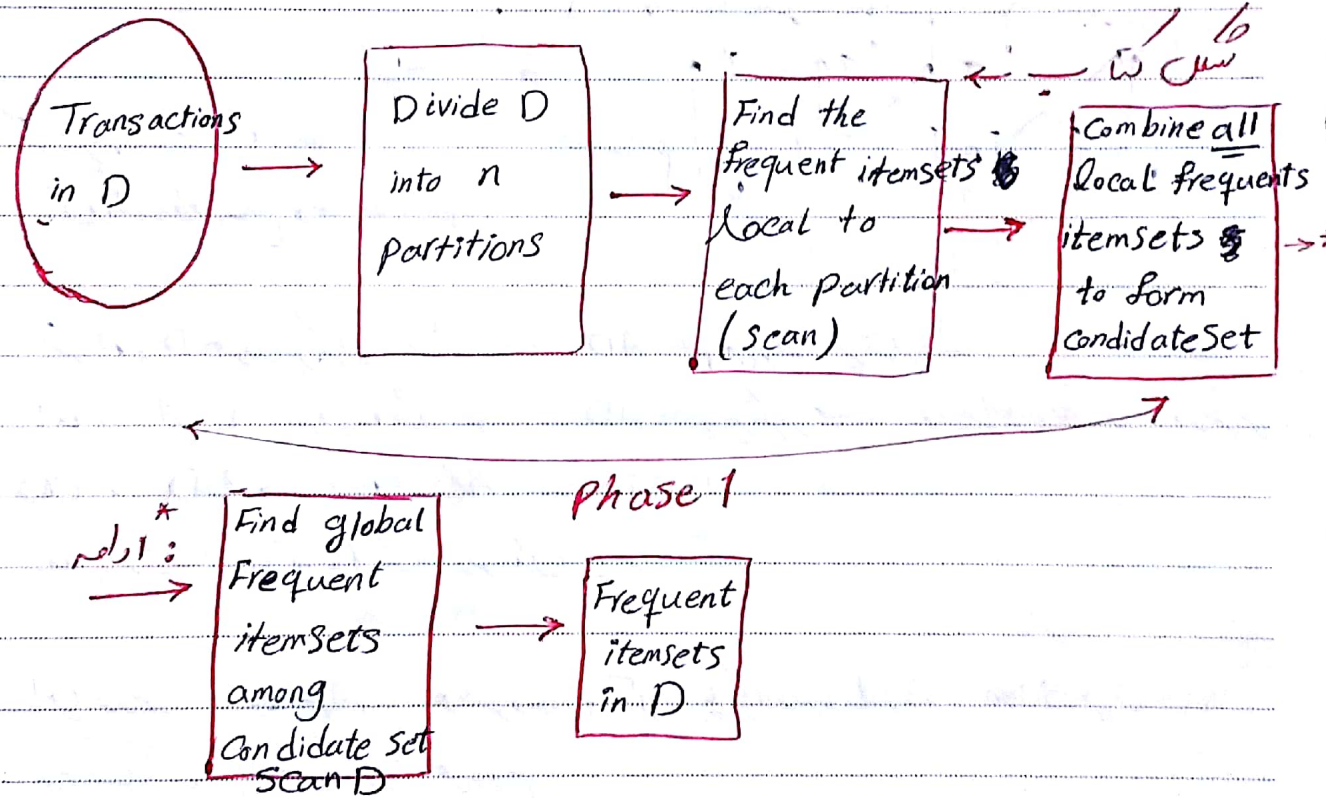 Transactions
in D
Divide D
into n
partitions
Find the
frequent itemsets
local to
each partition
(scan)
Combine all
local frequents
itemsets
to form
condidate set
Phase 1
* ادامه :
Find global
Frequent
itemsets
among
Condidate set
Scan D
Frequent
itemsets
in D